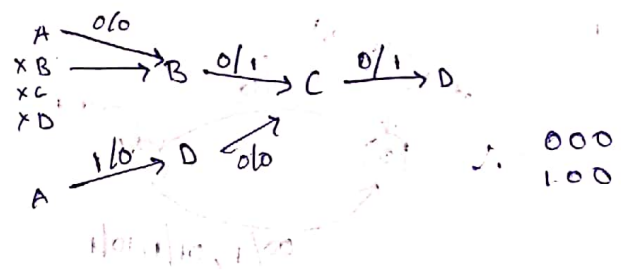 A 0/0
× B → B 0/1 → C 0/1 → D
× C
× D
A 1/0 → D 0/0
∴ 000
100